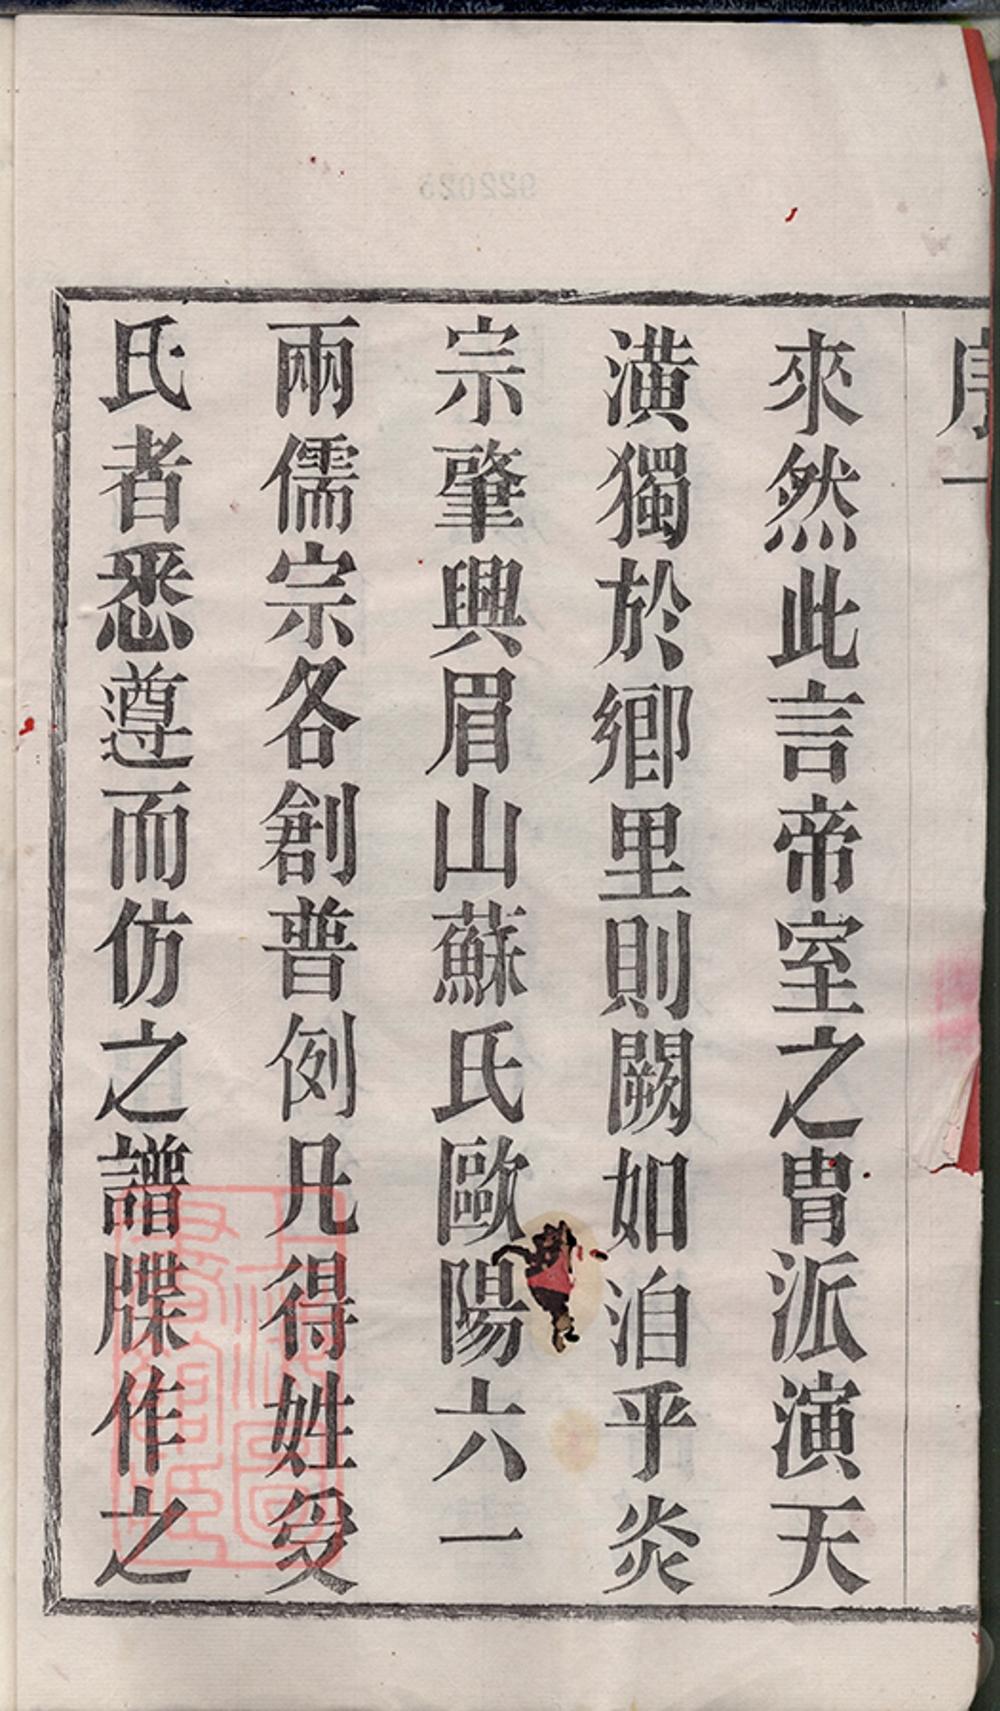 序一
來然此言帝室之胄派演天
潢獨於鄉里則闕如洎乎炎
宗肇興眉山蘇氏歐陽六一
兩儒宗各創普例凡得姓受
氏者悉遵而仿之譜牒作之